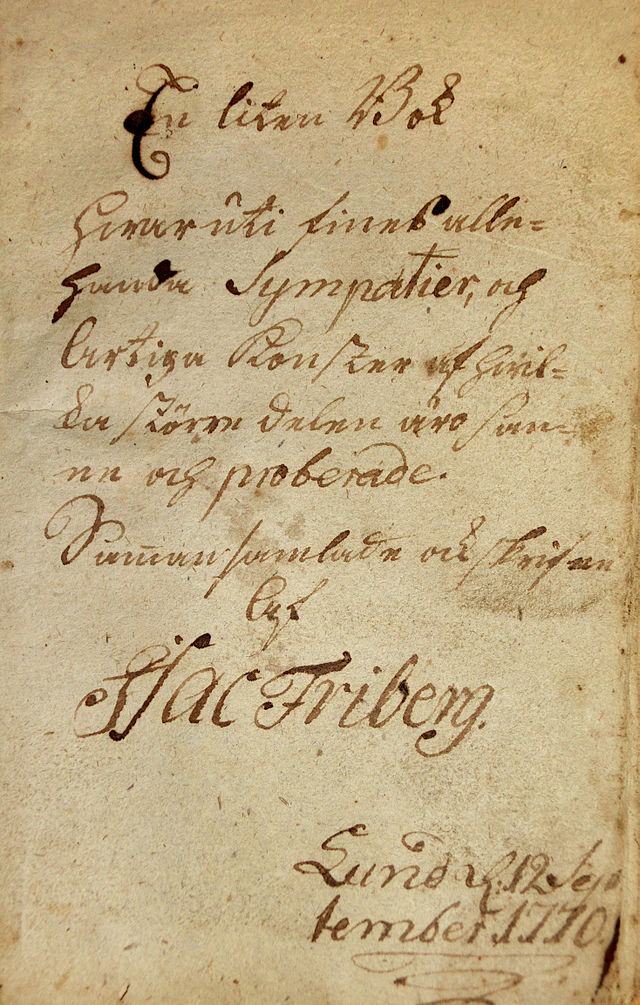 En liten Bok
hvaruti finnes alle-
handa Sympatier, och
Artiga Konster af hvil-
ka större delen äro san-
ne och proberade.
Samman samlade och skrifne
Af
Isac Friberg.
Lund d. 12 Sep
tember 1770.